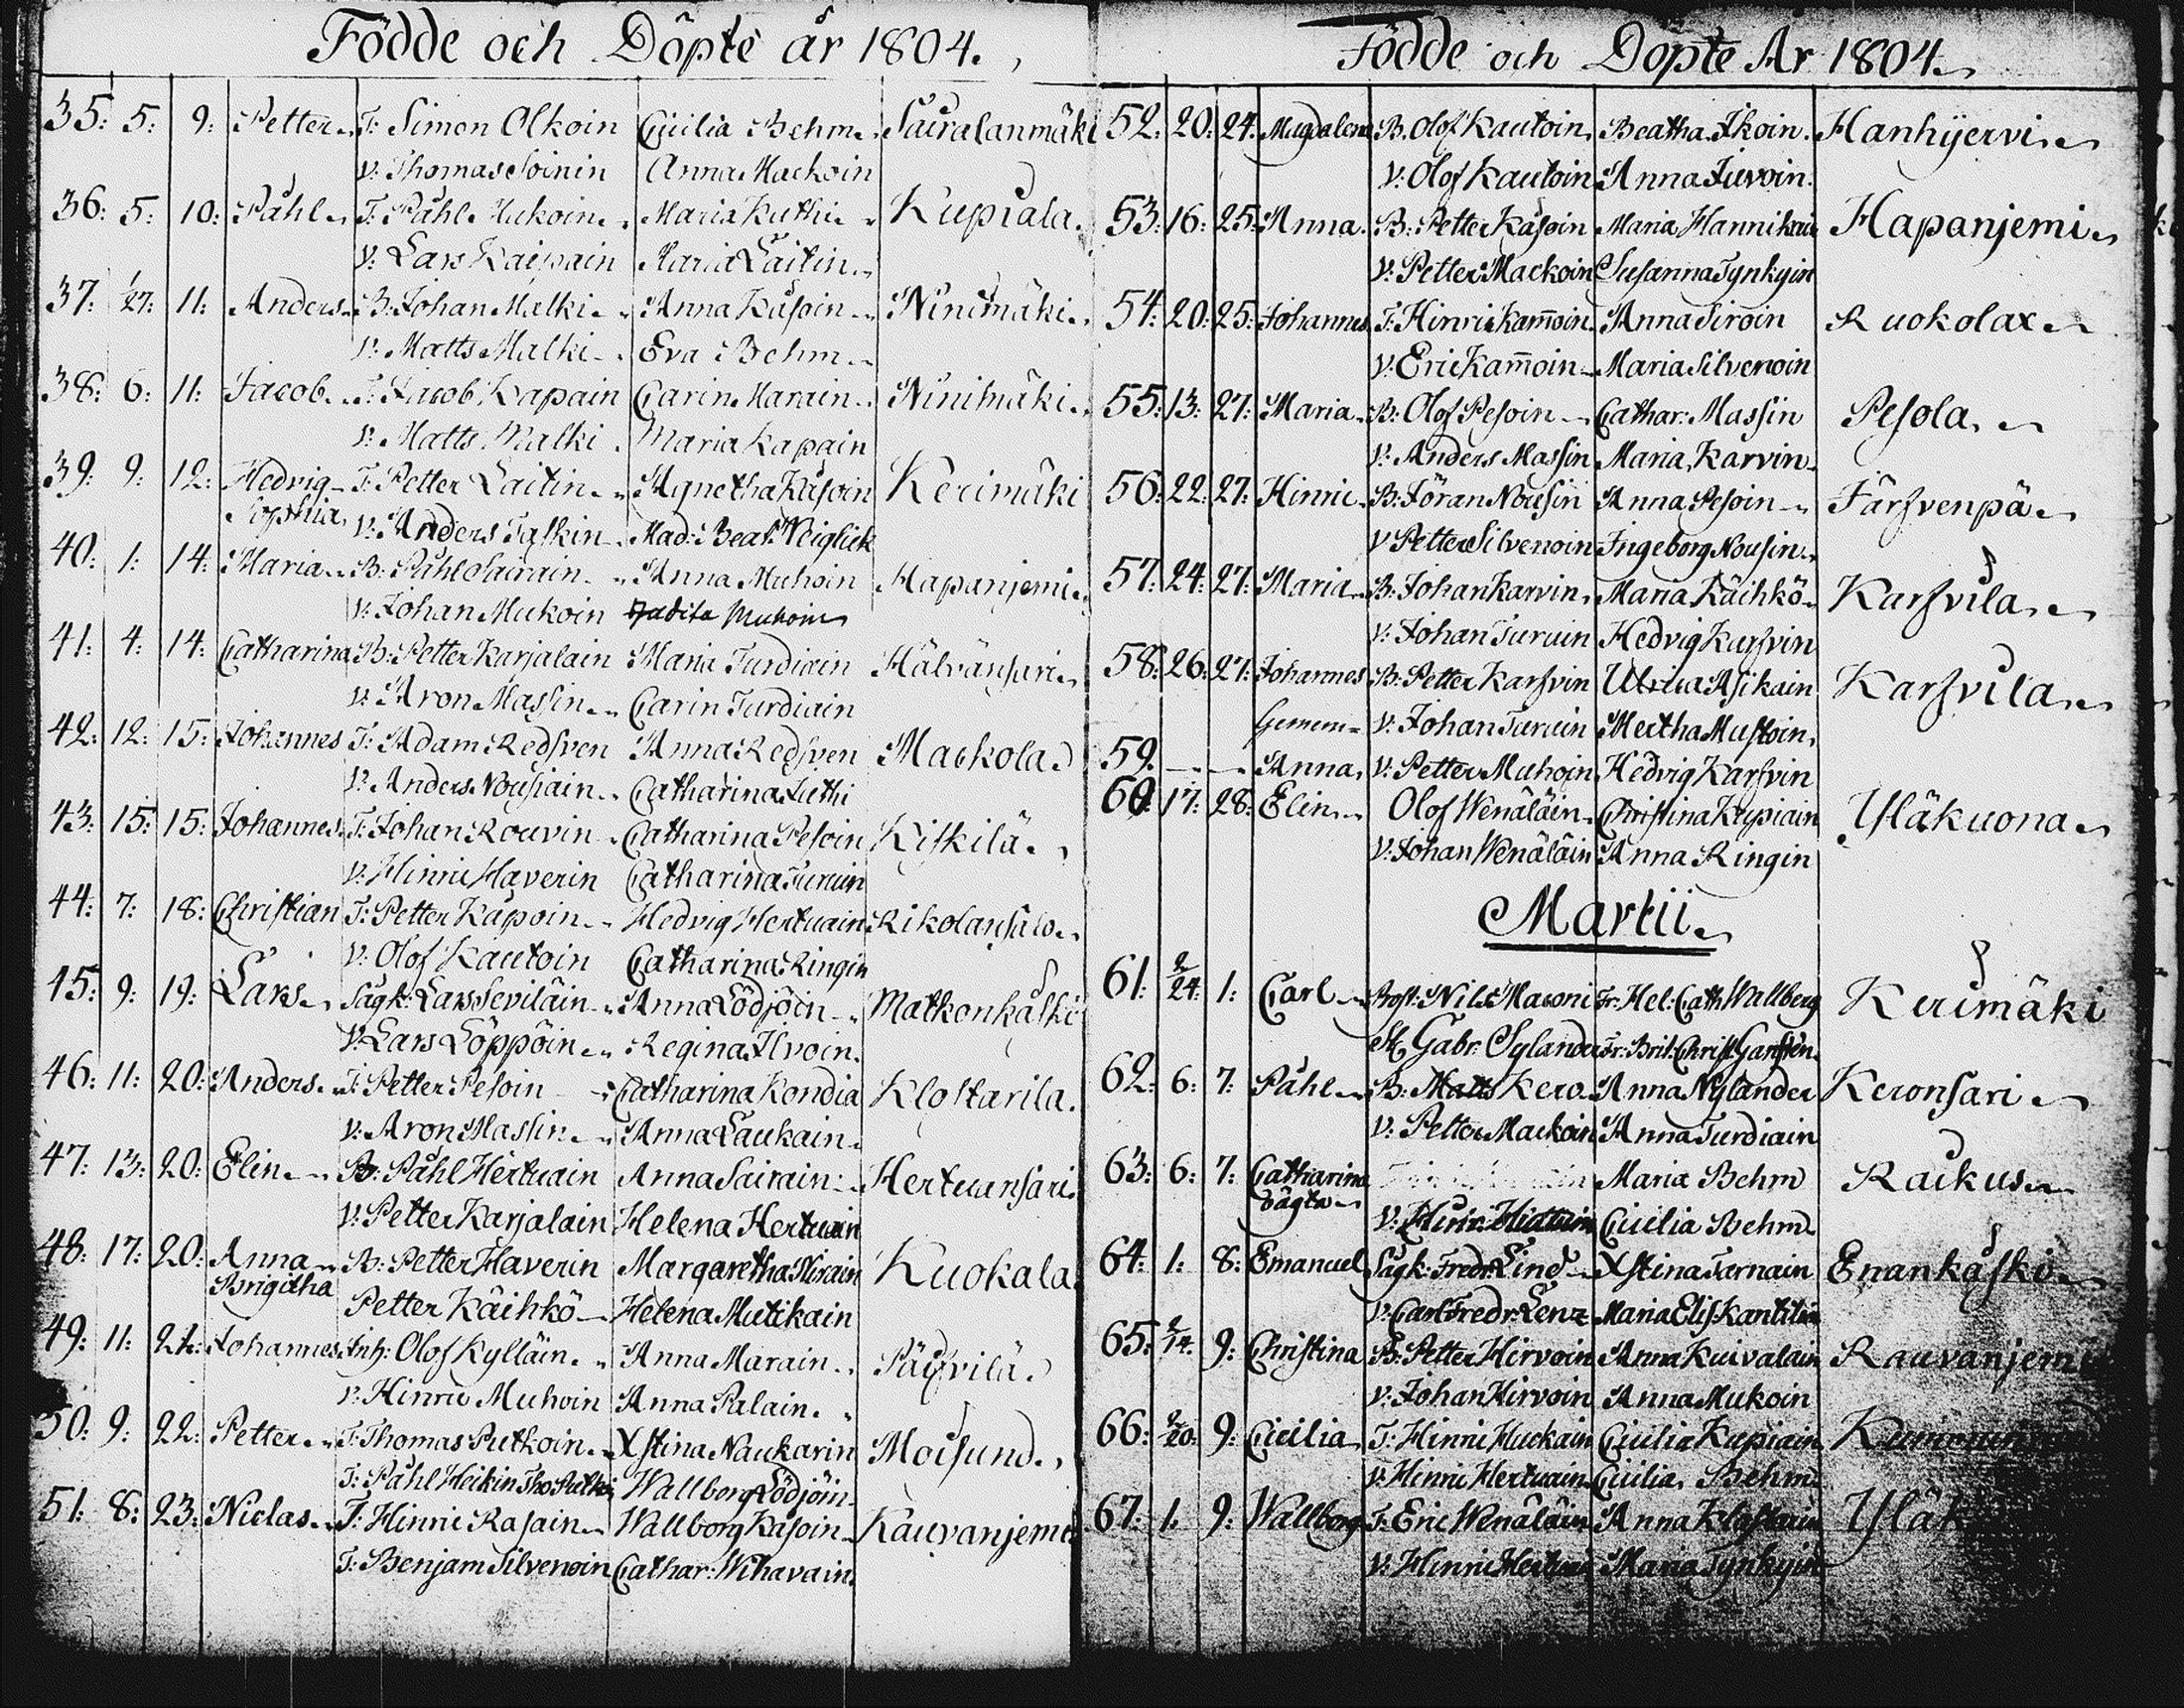 Födde och Döpte år 1804.
35: 5: 9: Petter. T: Simon Olkoin Cicilia Behm. Sairalanmäki
v: Thomas Soinin Anna Mackoin
36: 5: 10: Påhl. T: Påhl Mukoin. Maria Kuthi Kupiala.
v: Lars Kaipain Maria Laitin.
37: 1/27: 11: Anders. B: Johan Malki. Anna Käsoin Ninimäki.
v: Matts Malki. Eva Behm.
38: 6: 11: Jacob. T: Jacob Kapain Carin Marain. Ninimäki.
v: Matts Malki. Maria Kapain
39: 9: 12: Hedvig T: Petter Laitin. Agnetha Käsoin Kerimäki
Sophia v: Anders Taskin. Mad: Beat: Neiglick
40: 1: 14: Maria. B: Påhl Sairain. Anna Muhoin Hapanjemi.
v: Johan Mukoin Muhoin
41: 4: 14: Catharina B: Petter Karjalain Maria Turdiain Hälvänsari.
v: Aron Massin. Carin Turdiain
42: 12: 15: Johannes T: Adam Redsven Anna Redsven Mackola.
v: Anders Nousiain. Catharina Kuthi
43: 15: 15: Johannes. T: Johan Rouvin. Catharina Pesoin Kiskilä.
v: Hinric Haverin Catharina Turuin
44: 7: 18: Christian T: Petter Käpoin. Hedvig Hertuain Rikolansalo.
v: Olof Kautoin Catharina Ringin
45: 9: 19: Lars. Sagk: Lars Seviläin. Anna Lödjöin Matkonkåski
v: Lars Löppöin. Regina Ilvoin.
46: 11: 20: Anders. T: Petter Pesoin Catharina Kondia Klostarila.
v: Aron Massin. Anna Laukain.
47: 13: 20: Elin. B: Påhl Hertuain Anna Sairain. Hertuansari.
v: Petter Karjalain Helena Hertuain
48: 17: 20: Anna B: Petter Haverin Margaretha Nirain Kuokala.
Brigitha Petter Käihkö Helena Mutikain
49: 11: 21: Johannes. Inh: Olof Kylläin. Anna Marain. Päyvilä.
v: Hinric Muhoin Anna Palain.
50: 9: 22: Petter. T: Thomas Putkoin. Xstina Naukarin Moisund.
T: Påhl Heikin Wallborg Lödjöin.
51: 8: 23: Niclas. T: Hinric Rasain. Wallborg Käsoin. Rauvanjemi
T: Benjam Silvenoin Cathar: Wihavain.
Födde och Döpte År 1804.
52: 20: 24: Magdalena B. Olof Kautoin. Beatha Ikoin. Hanhijervi.
v: Olof Kautoin Anna Juvoin.
53: 16: 25: Anna. B: Petter Käsoin Maria Hannikai Hapanjemi.
v: Petter Mackoin Susanna Tynkyin
54: 20: 25: Johannes T: Hinric Kam̄oin. Anna Siroin Ruokolax.
v: Eric Kam̄oin. Maria Silvenoin
55: 13: 27: Maria. B: Olof Pesoin Cathar: Massin Pesola.
v: Anders Massin Maria Karvin.
56: 22: 27: Hinric. B: Jöran Nousin Anna Pesoin Järfvenpä.
v Petter Silvenoin Ingeborg Nousin.
57: 24: 27: Maria. B: Johan Karvin. Maria Käihkö Karfvila.
v: Johan Turuin Hedvig Karfvin
58: 26: 27: Johannes B: Petter Karfvin Ulrica Asikain Karfvila.
Gemem= v: Johan Turuin Mertha Mustoin.
59. Anna. v: Petter Muhoin Hedvig Karfvin
60. 17: 28: Elin. Olof Wenäläin. Christina Kupiain Yläkuona.
v: Johan Wenäläin Anna Ringin
Martii.
61: 2/24: 1: Carl Nils Maconi Fr: Hel: Cath Wallberg Kerimäki
Gabr: Sylander Fr: Brit: Christ
62: 6: 7: Påhl. B: Matts Kero. Anna Nylander Keronsari
v: Petter Mackoin Anna Turdiain
63: 6: 7: Catharina Maria Behm Raikus.
v: Cicilia Behm
64: 1: 8: Emanuel Sagk: Fredr: Lind Xstina Tarnain Enankåski
v: Carl Fredr: Lenz Maria Elis Kantilin
65: 2/14: 9: Christina B: Petter Hirvoin Anna Kuivalain Rauvanjemi
v: Johan Hirvoin Anna Mukoin
66: 2/20: 9: Cicilia T: Hinric Huckain Cicilia Kupiain
v: Hinric Hertuain Cicilia Behm
67: 1. 9: Wallborg T: Eric Wenäläin Anna Klostarin
v: Hinric Hertuain Maria Tynkyin